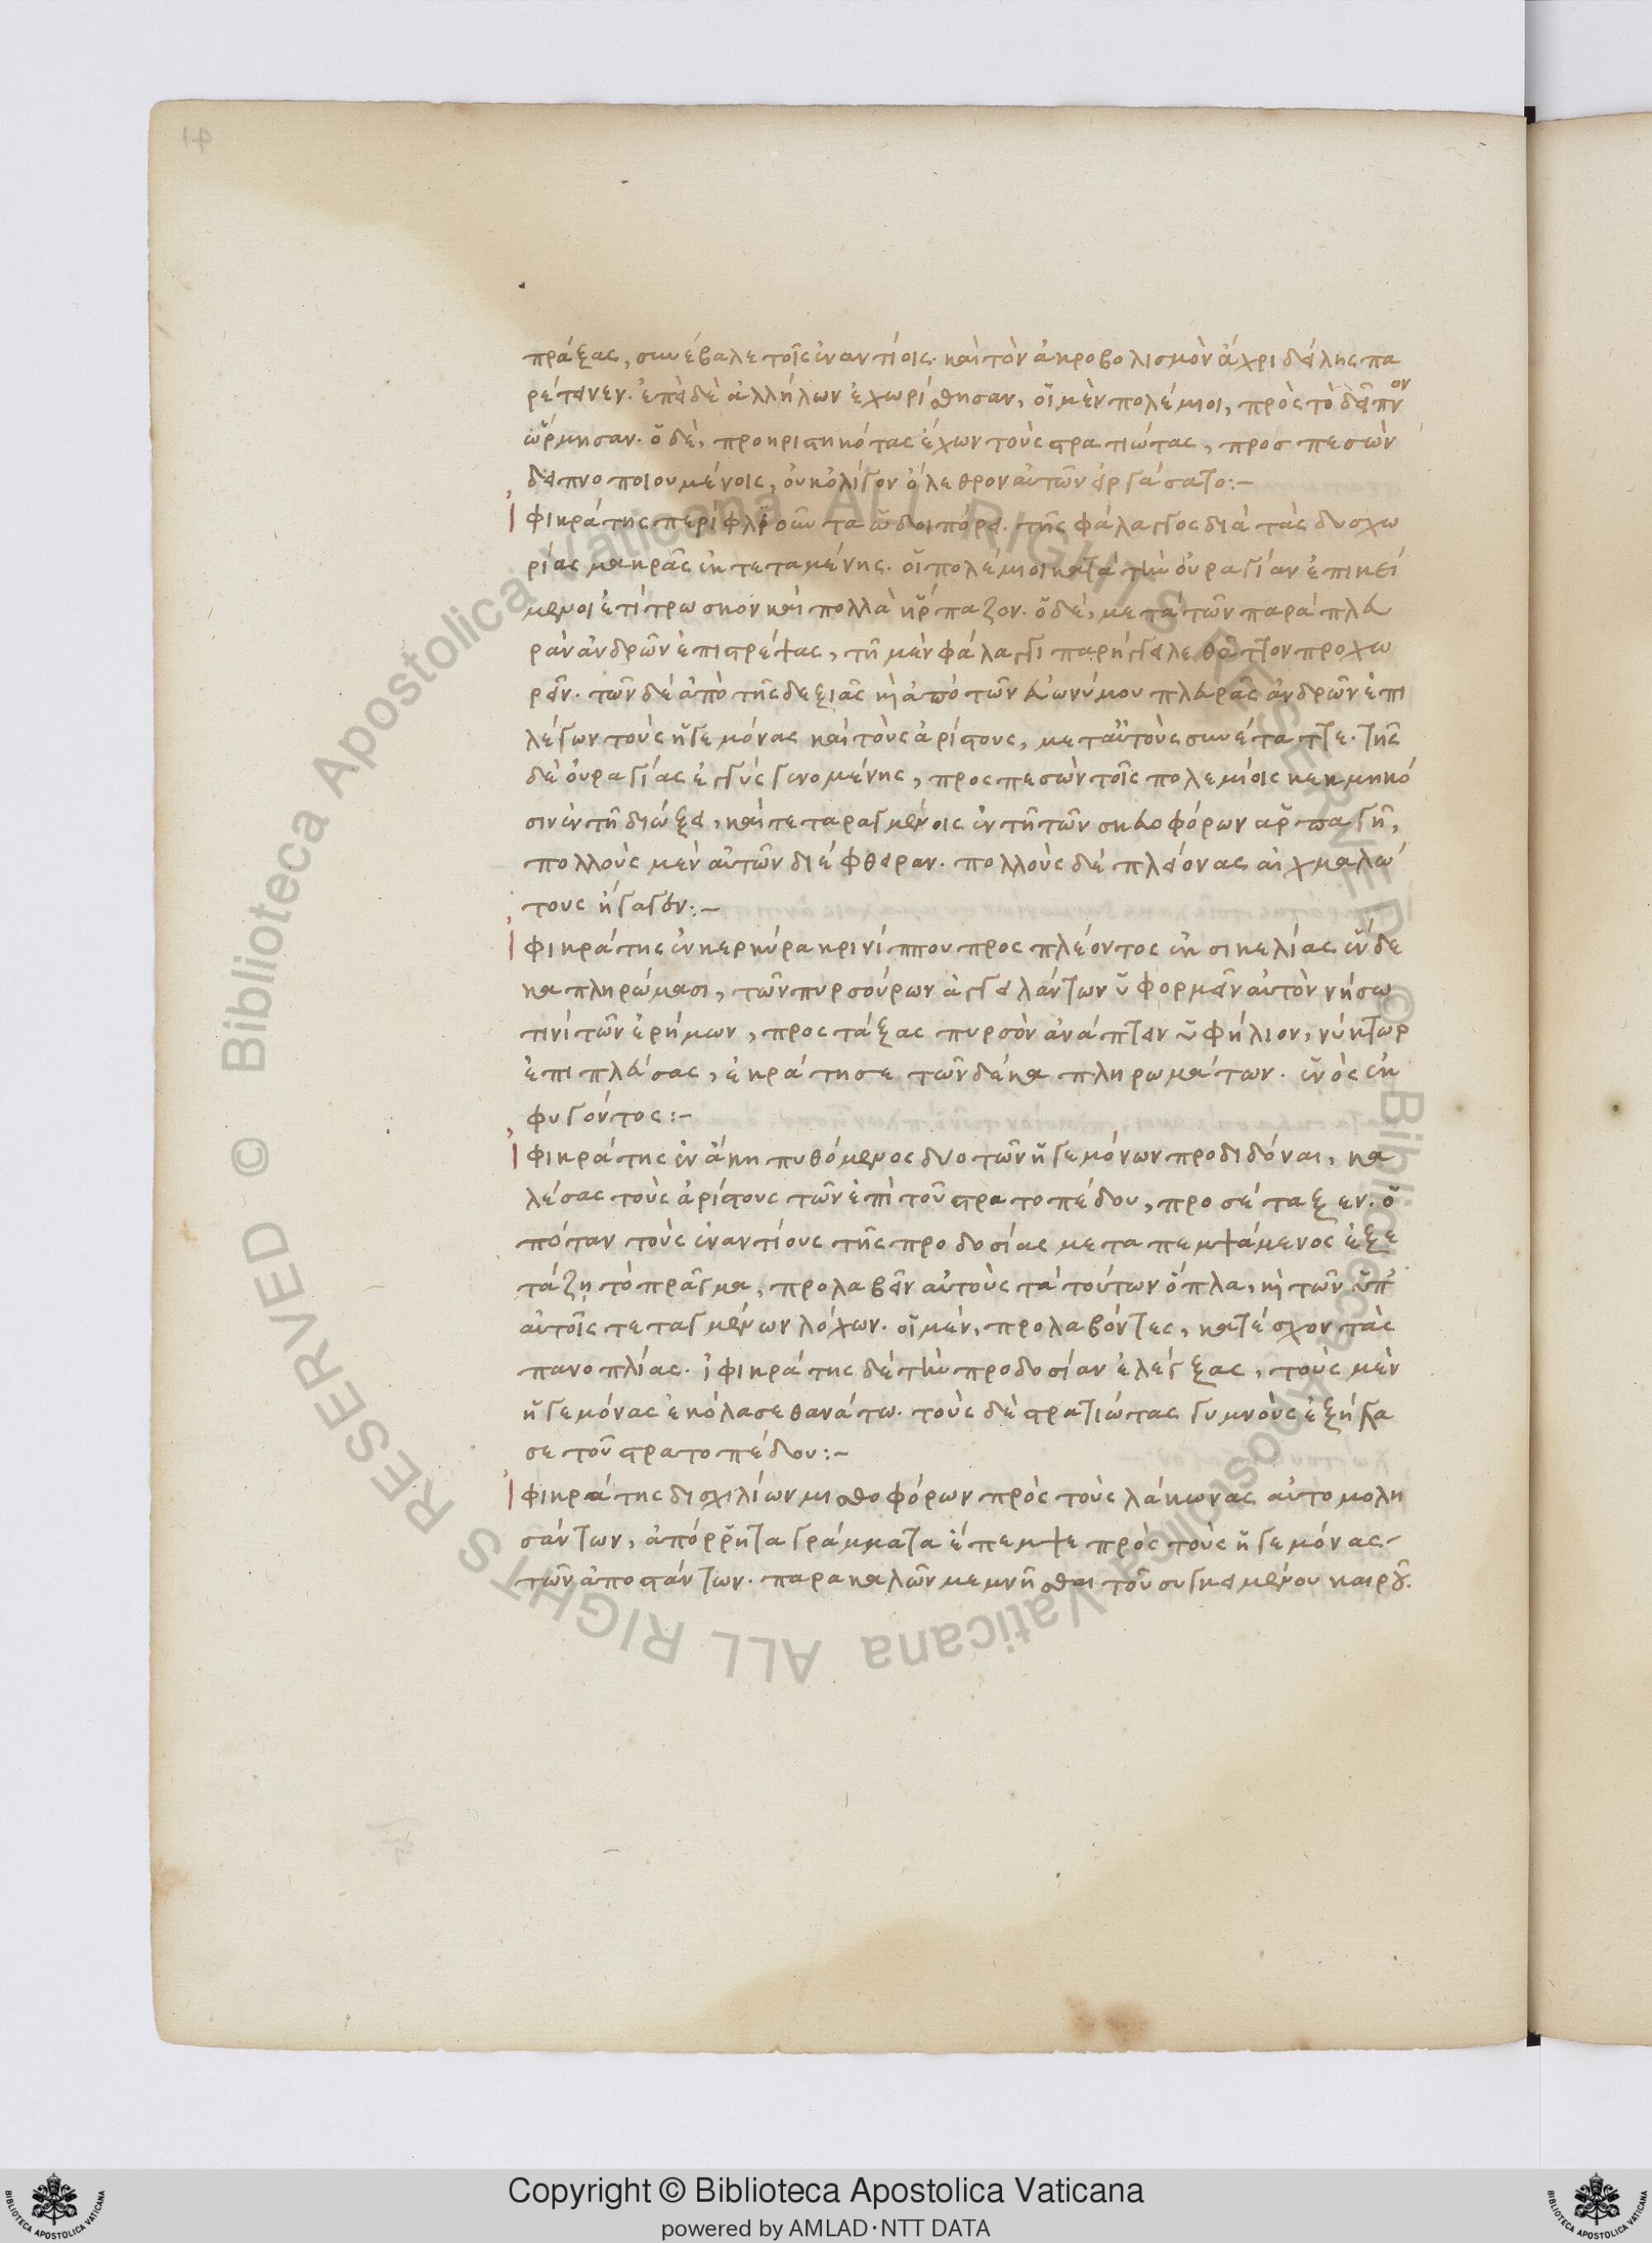 πράξας, συνέβαλε τοῖς ἐναντίοις· καὶ τὸν ἀκροβολισμὸν ἄχρι δείλης πα
ρέτεινεν. ἐπεὶ δὲ ἀλλήλων ἐχωρίσθησαν, οἱ μὲν πολέμιοι, πρὸς τὸ δεῖπνον
ὥρμησαν. ὁ δὲ, προηριστηκότας ἔχων τοὺς στρατιώτας, προσπεσὼν
δειπνοποιουμένοις, οὐκ ὀλίγον ὄλεθρον αὐτῶν εἰργάσατο:-
Ἰφικράτης περὶ φλϊοῦντα ὡδοιπόρει. τῆς φάλαγγος διὰ τὰς δυσχω
ρίας μακρᾶς ἐκτεταμένης. οἱ πολέμιοι κατὰ τὴν οὐραγίαν ἐπικεί
μενοι ἐτίτρωσκον καὶ πολλὰ ἥρπαζον. ὁ δὲ, μετὰ τῶν παρὰ πλευ
ρὰν ἀνδρῶν ἐπιστρέψας, τῇ μὲν φάλαγγι παρήγγειλε θᾶττον προχω
ρεῖν. τῶν δὲ ἀπὸ τῆς δεξιᾶς κὶ ἀπὸ τῶν εὐωνύμου πλευρᾶς ἀνδρῶν ἐπι
λέγων τοὺς ἡγεμόνας καὶ τοὺς ἀρίστους, μεταὐτοὺς συνέταττε. τῆς
δὲ οὐραγίας ἐγγὺς γινομένης, προσπεσὼν τοῖς πολεμίοις κεκμηκό
σιν ἐν τῇ διώξει, καὶ τεταραγμένοις ἐν τῇ τῶν σκευοφόρων ἁρπαγῇ,
πολλοὺς μὲν αὐτῶν διέφθειραν. πολλοὺς δὲ πλείονας αἰχμαλώ
τους ἤγαγον:-
Ἰφικράτης ἐν κερκύρα κρινίππου προσπλέοντος ἐκ σικελίας ἕνδε
κα πληρώμασι, τῶν πυρσούρων ἀγγειλάντων ὑφορμεῖν αὐτὸν νήσω
τινὶ τῶν ἐρήμων, προστάξας πυρσὸν ἀνάπτειν ὑφήλιον, νύκτωρ
ἐπιπλεύσας, ἐκράτησε τῶν δέκα πληρωμάτων. ἑνὸς ἐκ
φυγόντος:-
Ἰφικράτης ἐν ἄκη πυθόμενος δύο τῶν ἡγεμόνων προδιδόναι, κα
λέσας τοὺς ἀρίστους τῶν ἐπὶ τοῦ στρατοπέδου, προσέταξεν. ὁ
πόταν τοὺς ἐναντίους τῆς προδοσίας μεταπεμψάμενος ἐξε
τάζη τὸ πρᾶγμα, προλαβεῖν αὐτοὺς τὰ τούτων ὅπλα, κὶ τῶν ὑπ'
αὐτοῖς τεταγμένων λόχων. οἱ μὲν, προλαβόντες, κατέσχον τὰς
πανοπλίας. ἰφικράτης δὲ τὴν προδοσίαν ἐλέγξας, τοὺς μὲν
ἡγεμόνας ἐκόλασε θανάτω. τοὺς δὲ στρατιώτας γυμνοὺς ἐξήλα
σε τοῦ στρατοπέδου:-
Ἰφικράτης δισχιλίων μισθοφόρων πρὸς τοὺς λάκωνας αὐτομολη
σάντων, ἀπόρρητα γράμματα ἔπεμψε πρὸς τοὺς ἡγεμόνας
τῶν ἀποστάντων. παρακαλῶν μεμνῆσθαι τοῦ συγκειμένου καιροῦ.
© Biblioteca Apostolica Vaticana ALL RIGHTS RESERVED
© Biblioteca Apostolica Vaticana ALL RIGHTS RESERVED
Copyright © Biblioteca Apostolica Vaticana
powered by AMLAD·NTT DATA
BIBLIOTECA APOSTOLICA VATICANA
BIBLIOTECA APOSTOLICA VATICANA